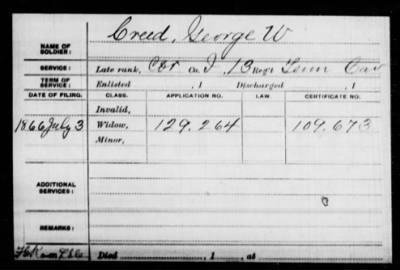 Creed, George W
NAME OF SOLDIER:
SERVICE: Late rank, Co. I, 13 Reg't Tenn Cav
TERM OF SERVICE: Enlisted , 1 Discharged , 1
DATE OF FILING. CLASS. APPLICATION NO. LAW. CERTIFICATE NO.
Invalid,
1866 July 3 Widow, 129.264 109.673
Minor,
ADDITIONAL SERVICES:
REMARKS:
Died , 1 , at